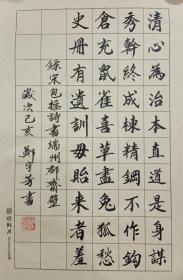 清心為治本直道是身謀
秀幹終成棟精鋼不作鈎
倉充鼠雀喜草盡兔狐愁
史冊有遺訓毋貽來者羞
錄宋包拯詩書端州郡齋壁
歲次己亥 鄭宇芳書